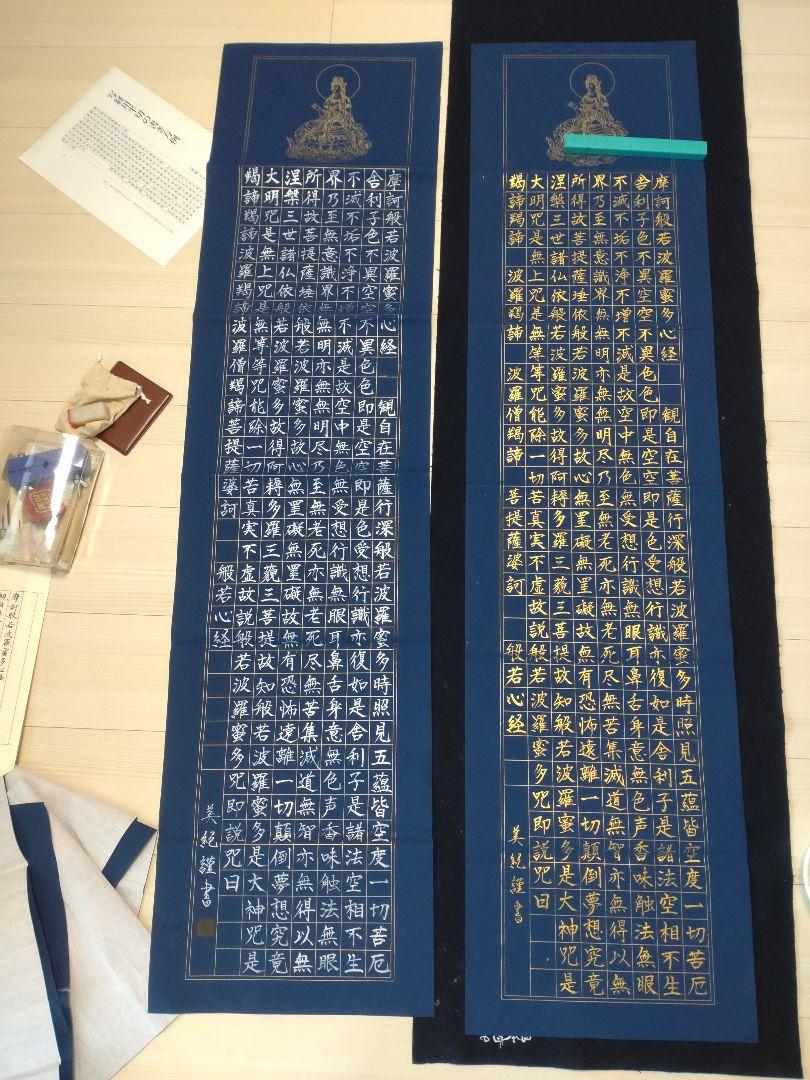 摩訶般若波羅蜜多心経 観自在菩薩行深般若波羅蜜多時照見五蘊皆空度一切苦厄
舎利子色不異空空不異色色即是空空即是色受想行識亦復如是舎利子是諸法空相不生
不滅不垢不浄不増不減是故空中無色無受想行識無眼耳鼻舌身意無色声香味触法無眼
界乃至無意識界無無明亦無無明尽乃至無老死亦無老死尽無苦集滅道無智亦無得以無
所得故菩提薩埵依般若波羅蜜多故心無罣礙無罣礙故無有恐怖遠離一切顛倒夢想究竟
涅槃三世諸仏依般若波羅蜜多故得阿耨多羅三藐三菩提故知般若波羅蜜多是大神咒是
大明咒是無上咒是無等等咒能除一切苦真実不虚故説般若波羅蜜多咒即説咒曰
羯諦羯諦 波羅羯諦 波羅僧羯諦 菩提薩婆訶 般若心経
美紀謹書
摩訶般若波羅蜜多心経 観自在菩薩行深般若波羅蜜多時照見五蘊皆空度一切苦厄
舎利子色不異空空不異色色即是空空即是色受想行識亦復如是舎利子是諸法空相不生
不滅不垢不浄不増不減是故空中無色無受想行識無眼耳鼻舌身意無色声香味触法無眼
界乃至無意識界無無明亦無無明尽乃至無老死亦無老死尽無苦集滅道無智亦無得以無
所得故菩提薩埵依般若波羅蜜多故心無罣礙無罣礙故無有恐怖遠離一切顛倒夢想究竟
涅槃三世諸仏依般若波羅蜜多故得阿耨多羅三藐三菩提故知般若波羅蜜多是大神咒是
大明咒是無上咒是無等等咒能除一切苦真実不虚故説般若波羅蜜多咒即説咒曰
羯諦羯諦波羅羯諦波羅僧羯諦菩提薩婆訶 般若心経
美紀謹書
摩訶般若波羅蜜多心